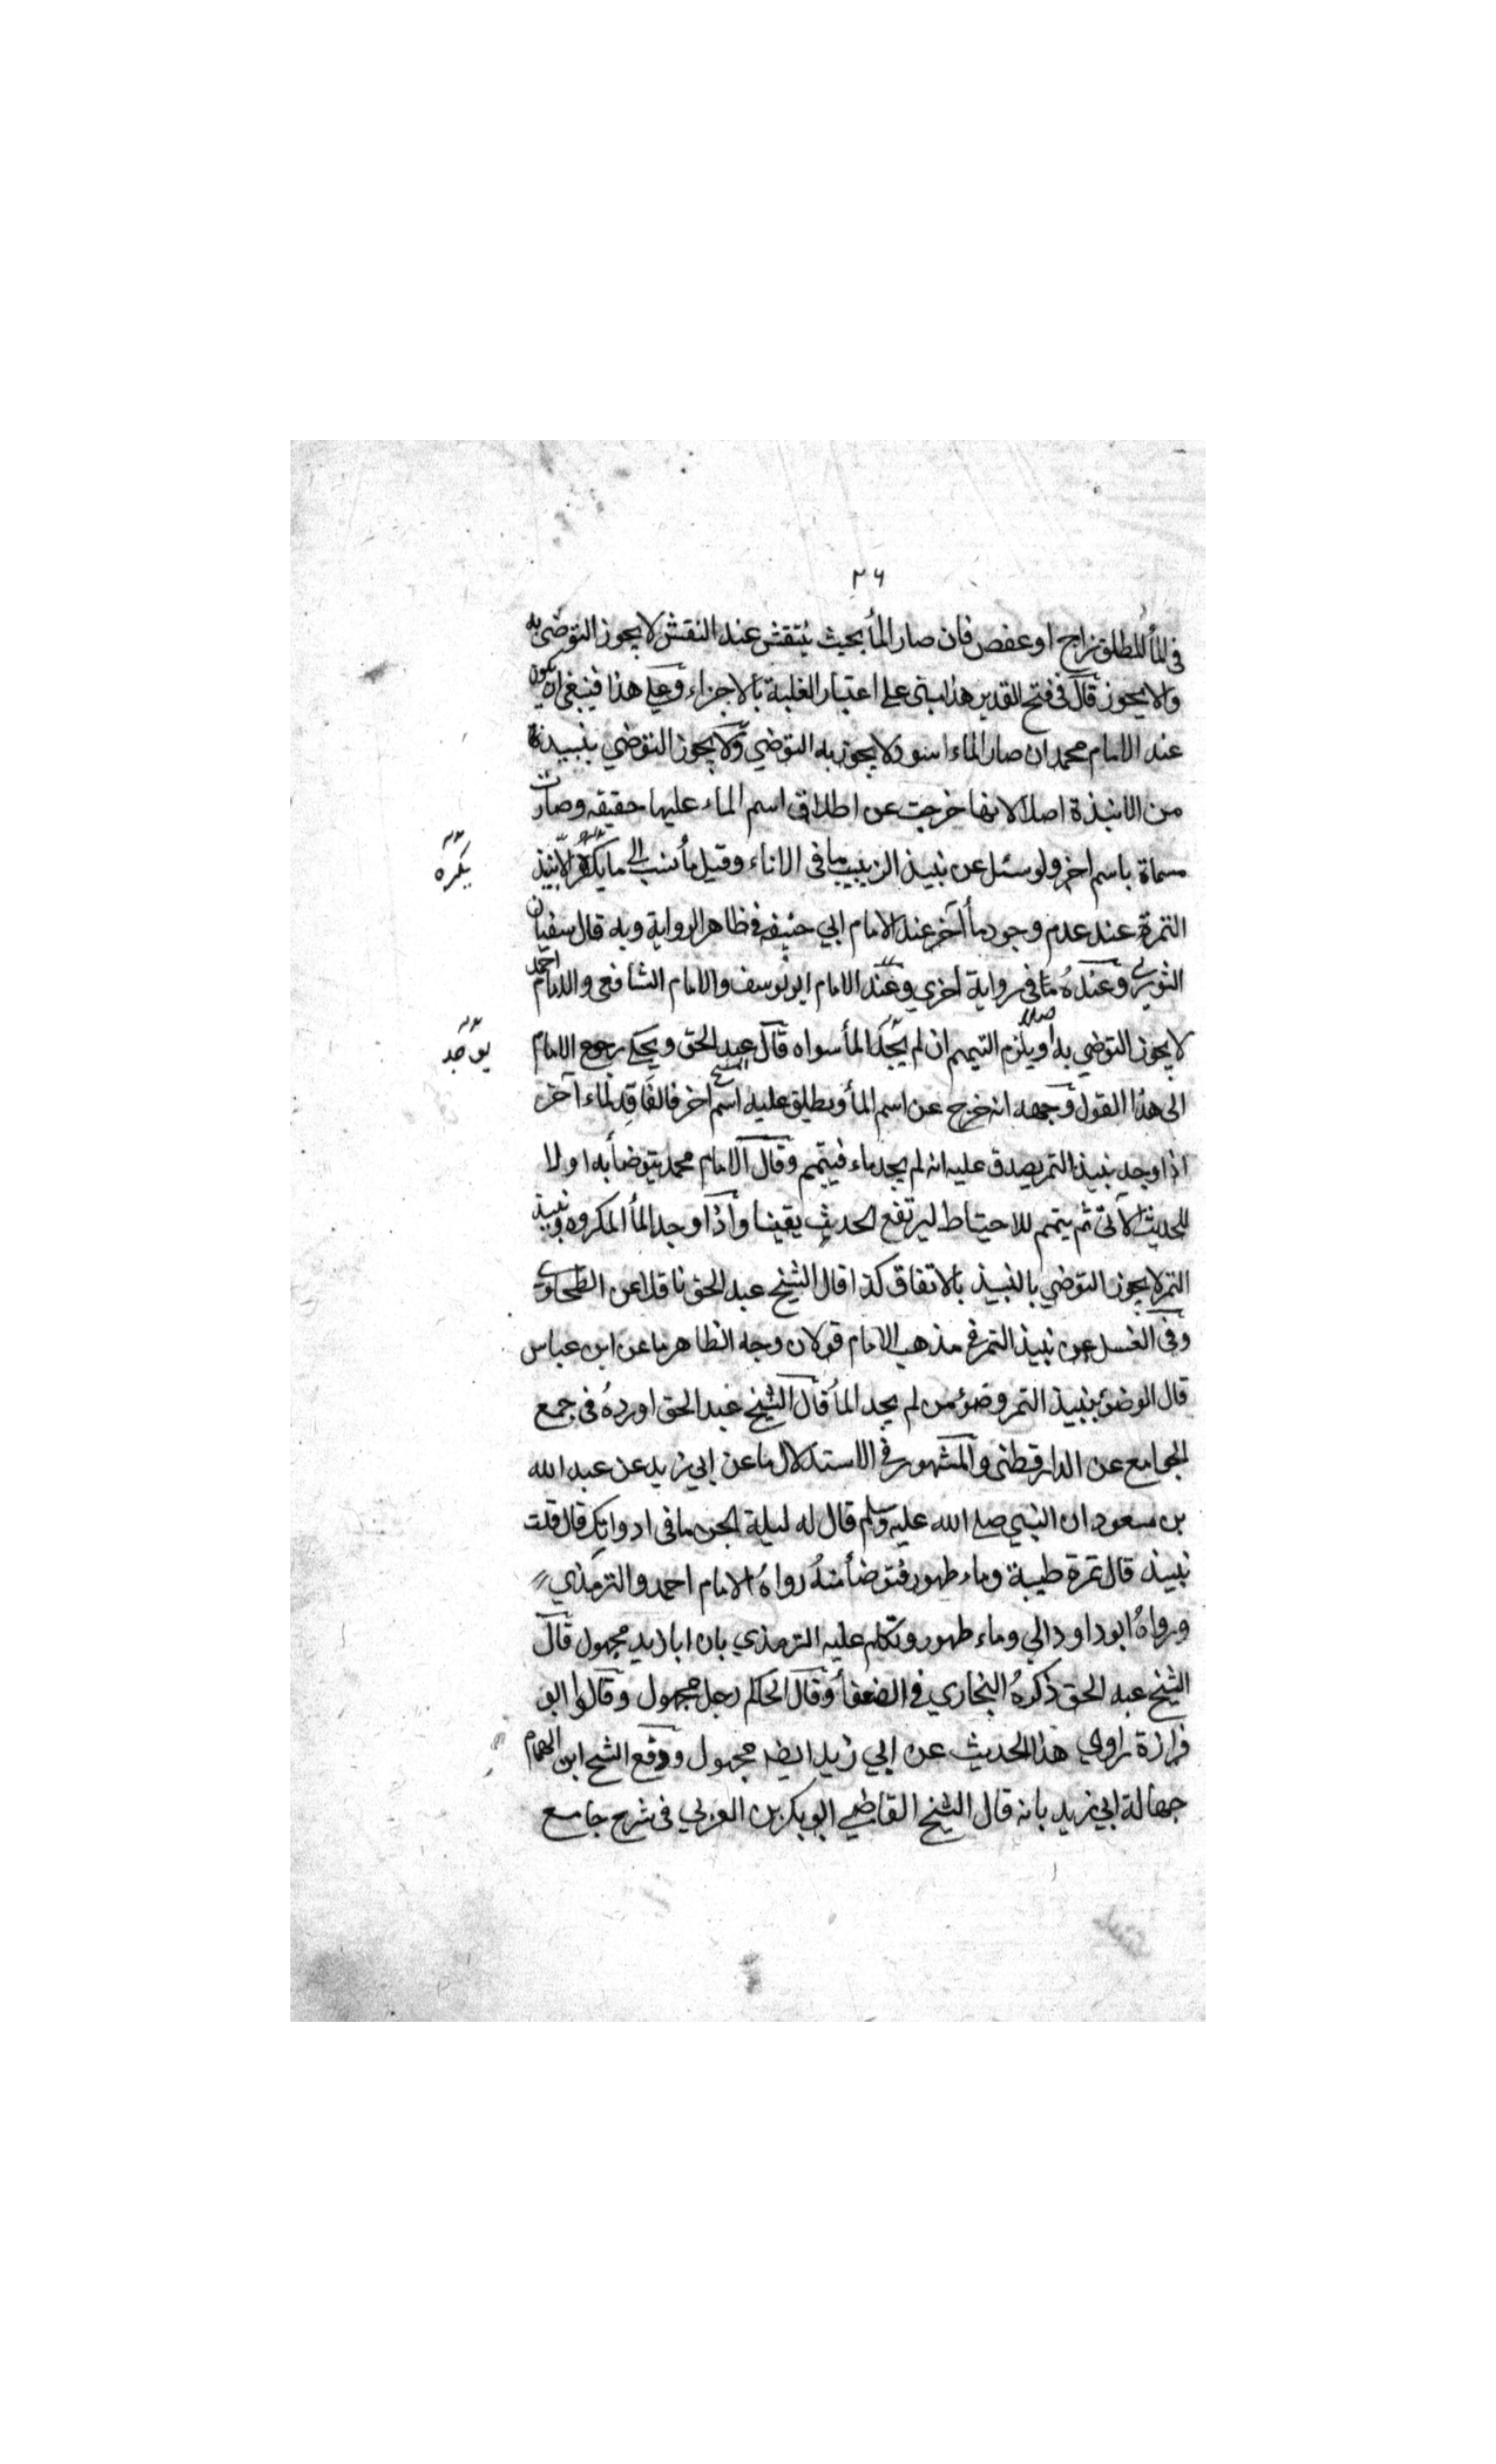 ٢٦
فى المأ المطلق زاج او عفص فان صار المأ بحيث ينتقش عند النقش لا يجوز التوضى به
والا يجوز قال فى فتح القدير هذا مبنى على اعتبار الغلبة بالاجزاء وعلى هذا فينبغى ان يكون
عند الامام محمد ان صار الماء اسود لا يجوز به التوضي ولا يجوز التوضي بنبيذ
من الانبذة اصلا لانها خرجت عن اطلاق اسم الماء عليها حقيقه وصارت
مسماة باسم اخر ولو سئل عن نبيذ الزبيب ما فى الاناء وقيل مأ نسب الى ما يكره الا نبيذ
يكره
التمرة عند عدم وجود مأ آخر عند الامام ابي حنيفه فى ظاهر الرواية وبه قال سفيان
الثوري وعنده ما فى رواية اخري وعند الامام ابو يوسف والامام الشافعى والامام احمد
لا يجوز التوضي به اصلا ويلزم التيمم ان لم يجد المأ سواه قال الشيخ عبد الحق ويحكى رجوع الامام
يوجد
الى هذا القول وجهه انه خرج عن اسم المأ ويطلق عليه اسم اخر فالفاقد لماء آخر
اذا وجد نبيذ التمر يصدق عليه انه لم يجد ماء فيتيمم وقال الامام محمد يتوضأ به اولا
للحديث الآتى ثم يتيمم للاحتياط ليرتفع الحدث يقينا واذا وجد المأ المكروه ونبيذ
التمر لا يجوز التوضي بالنبيذ بالاتفاق كذا قال الشيخ عبد الحق ناقلا عن الطحاوي
وفى الغسل عن نبيذ التمر فى مذهب الامام قولان وجه الظاهر ما عن ابن عباس
قال الوضؤ بنبيذ التمر وضؤ من لم يجد المأ قال الشيخ عبد الحق اورده فى جمع
الجوامع عن الدارقطنى والمشهور فى الاستدلال ما عن ابي زيد عن عبد الله
بن مسعود ان النبي صلى الله عليه وسلم قال له ليلة الجن ما فى ادواتك قال قلت
نبيذ قال تمرة طيبة وماء طهور فتوضأ منه رواه الامام احمد والترمذي
ورواه ابو داود الى وماء طهور وتكلم عليه الترمذي بان ابا زيد مجهول قال
الشيخ عبد الحق ذكره البخاري فى الضعفأ وقال الحاكم رجل مجهول وقالوا ابو
فزازة راوى هذا الحديث عن ابي زيد ايضه مجهول ودفع الشيخ ابن الهمام
جهالة ابي زيد بانه قال الشيخ القاضي ابو بكر بن العربي فى شرح جامع